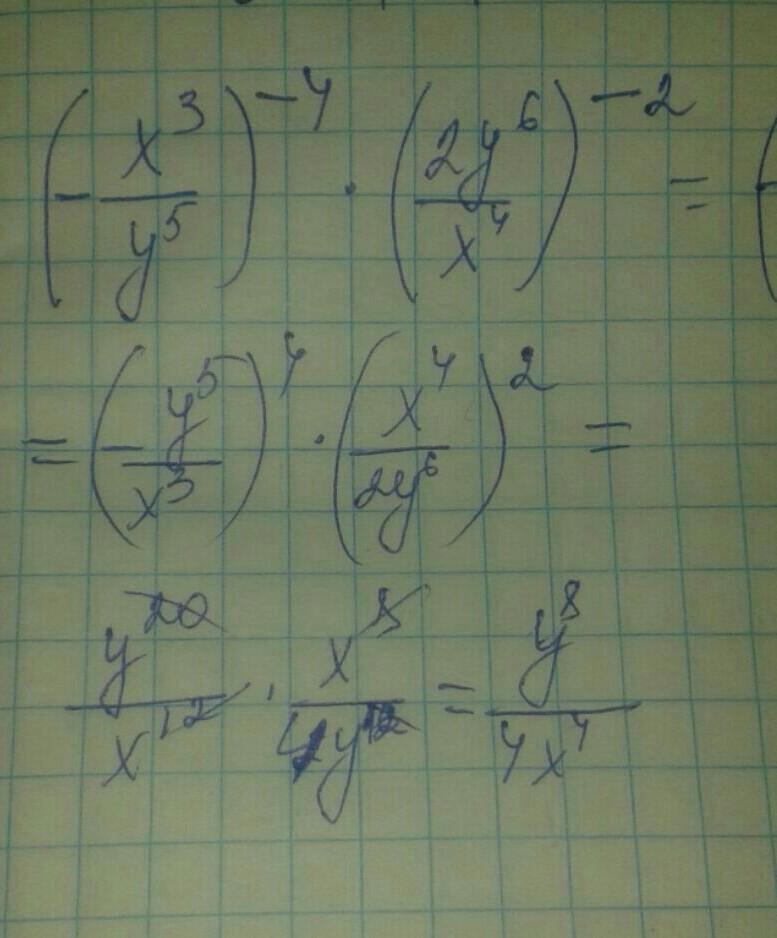 (-x³/y⁵)⁻⁴ · (2y⁶/x⁴)⁻² = (
= (-y⁵/x³)⁴ · (x⁴/2y⁶)² =
y²⁰/x¹² · x⁸/4y¹² = y⁸/4x⁴